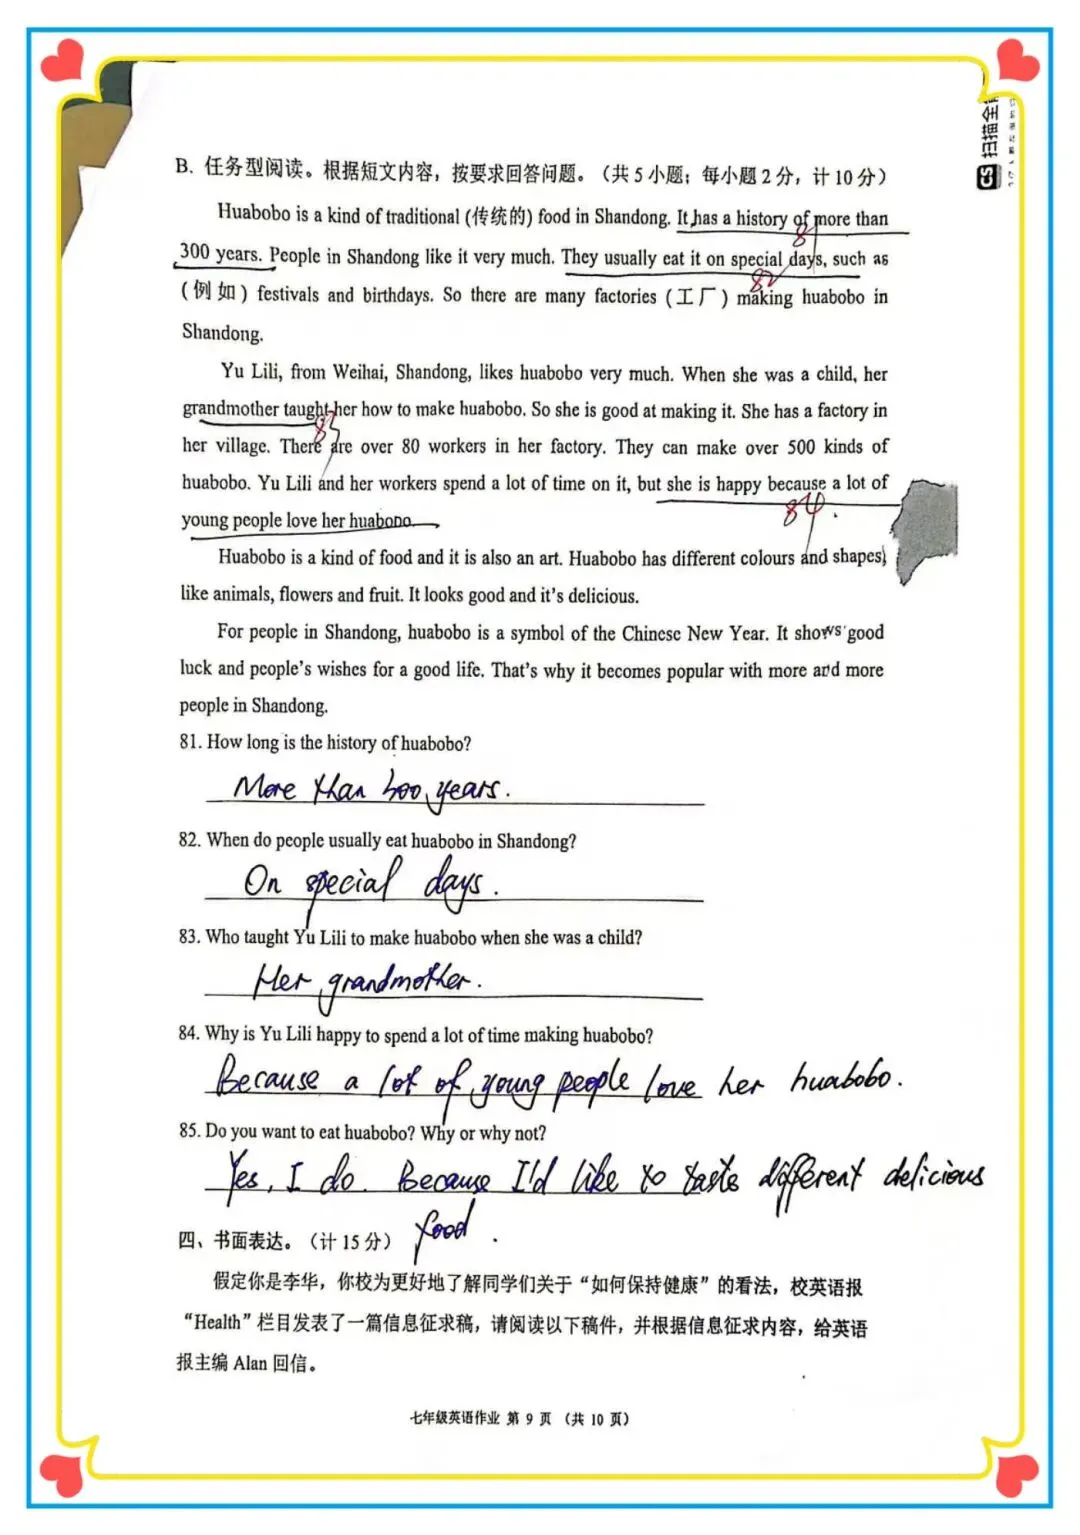 CS 扫描全
B. 任务型阅读。根据短文内容，按要求回答问题。（共 5 小题；每小题 2 分，计 10 分）
Huabobo is a kind of traditional (传统的) food in Shandong. It has a history of more than
81
300 years. People in Shandong like it very much. They usually eat it on special days, such as
82
(例如) festivals and birthdays. So there are many factories (工厂) making huabobo in
Shandong.
Yu Lili, from Weihai, Shandong, likes huabobo very much. When she was a child, her
grandmother taught her how to make huabobo. So she is good at making it. She has a factory in
83
her village. There are over 80 workers in her factory. They can make over 500 kinds of
huabobo. Yu Lili and her workers spend a lot of time on it, but she is happy because a lot of
84
young people love her huabobo.
Huabobo is a kind of food and it is also an art. Huabobo has different colours and shapes,
like animals, flowers and fruit. It looks good and it's delicious.
For people in Shandong, huabobo is a symbol of the Chinese New Year. It shows good
luck and people's wishes for a good life. That's why it becomes popular with more and more
people in Shandong.
81. How long is the history of huabobo?
More than 300 years.
82. When do people usually eat huabobo in Shandong?
On special days.
83. Who taught Yu Lili to make huabobo when she was a child?
Her grandmother.
84. Why is Yu Lili happy to spend a lot of time making huabobo?
Because a lot of young people love her huabobo.
85. Do you want to eat huabobo? Why or why not?
Yes, I do. Because I'd like to taste different delicious
food.
四、书面表达。（计 15 分）
假定你是李华，你校为更好地了解同学们关于“如何保持健康”的看法，校英语报
“Health”栏目发表了一篇信息征求稿，请阅读以下稿件，并根据信息征求内容，给英语
报主编 Alan 回信。
七年级英语作业 第 9 页 （共 10 页）